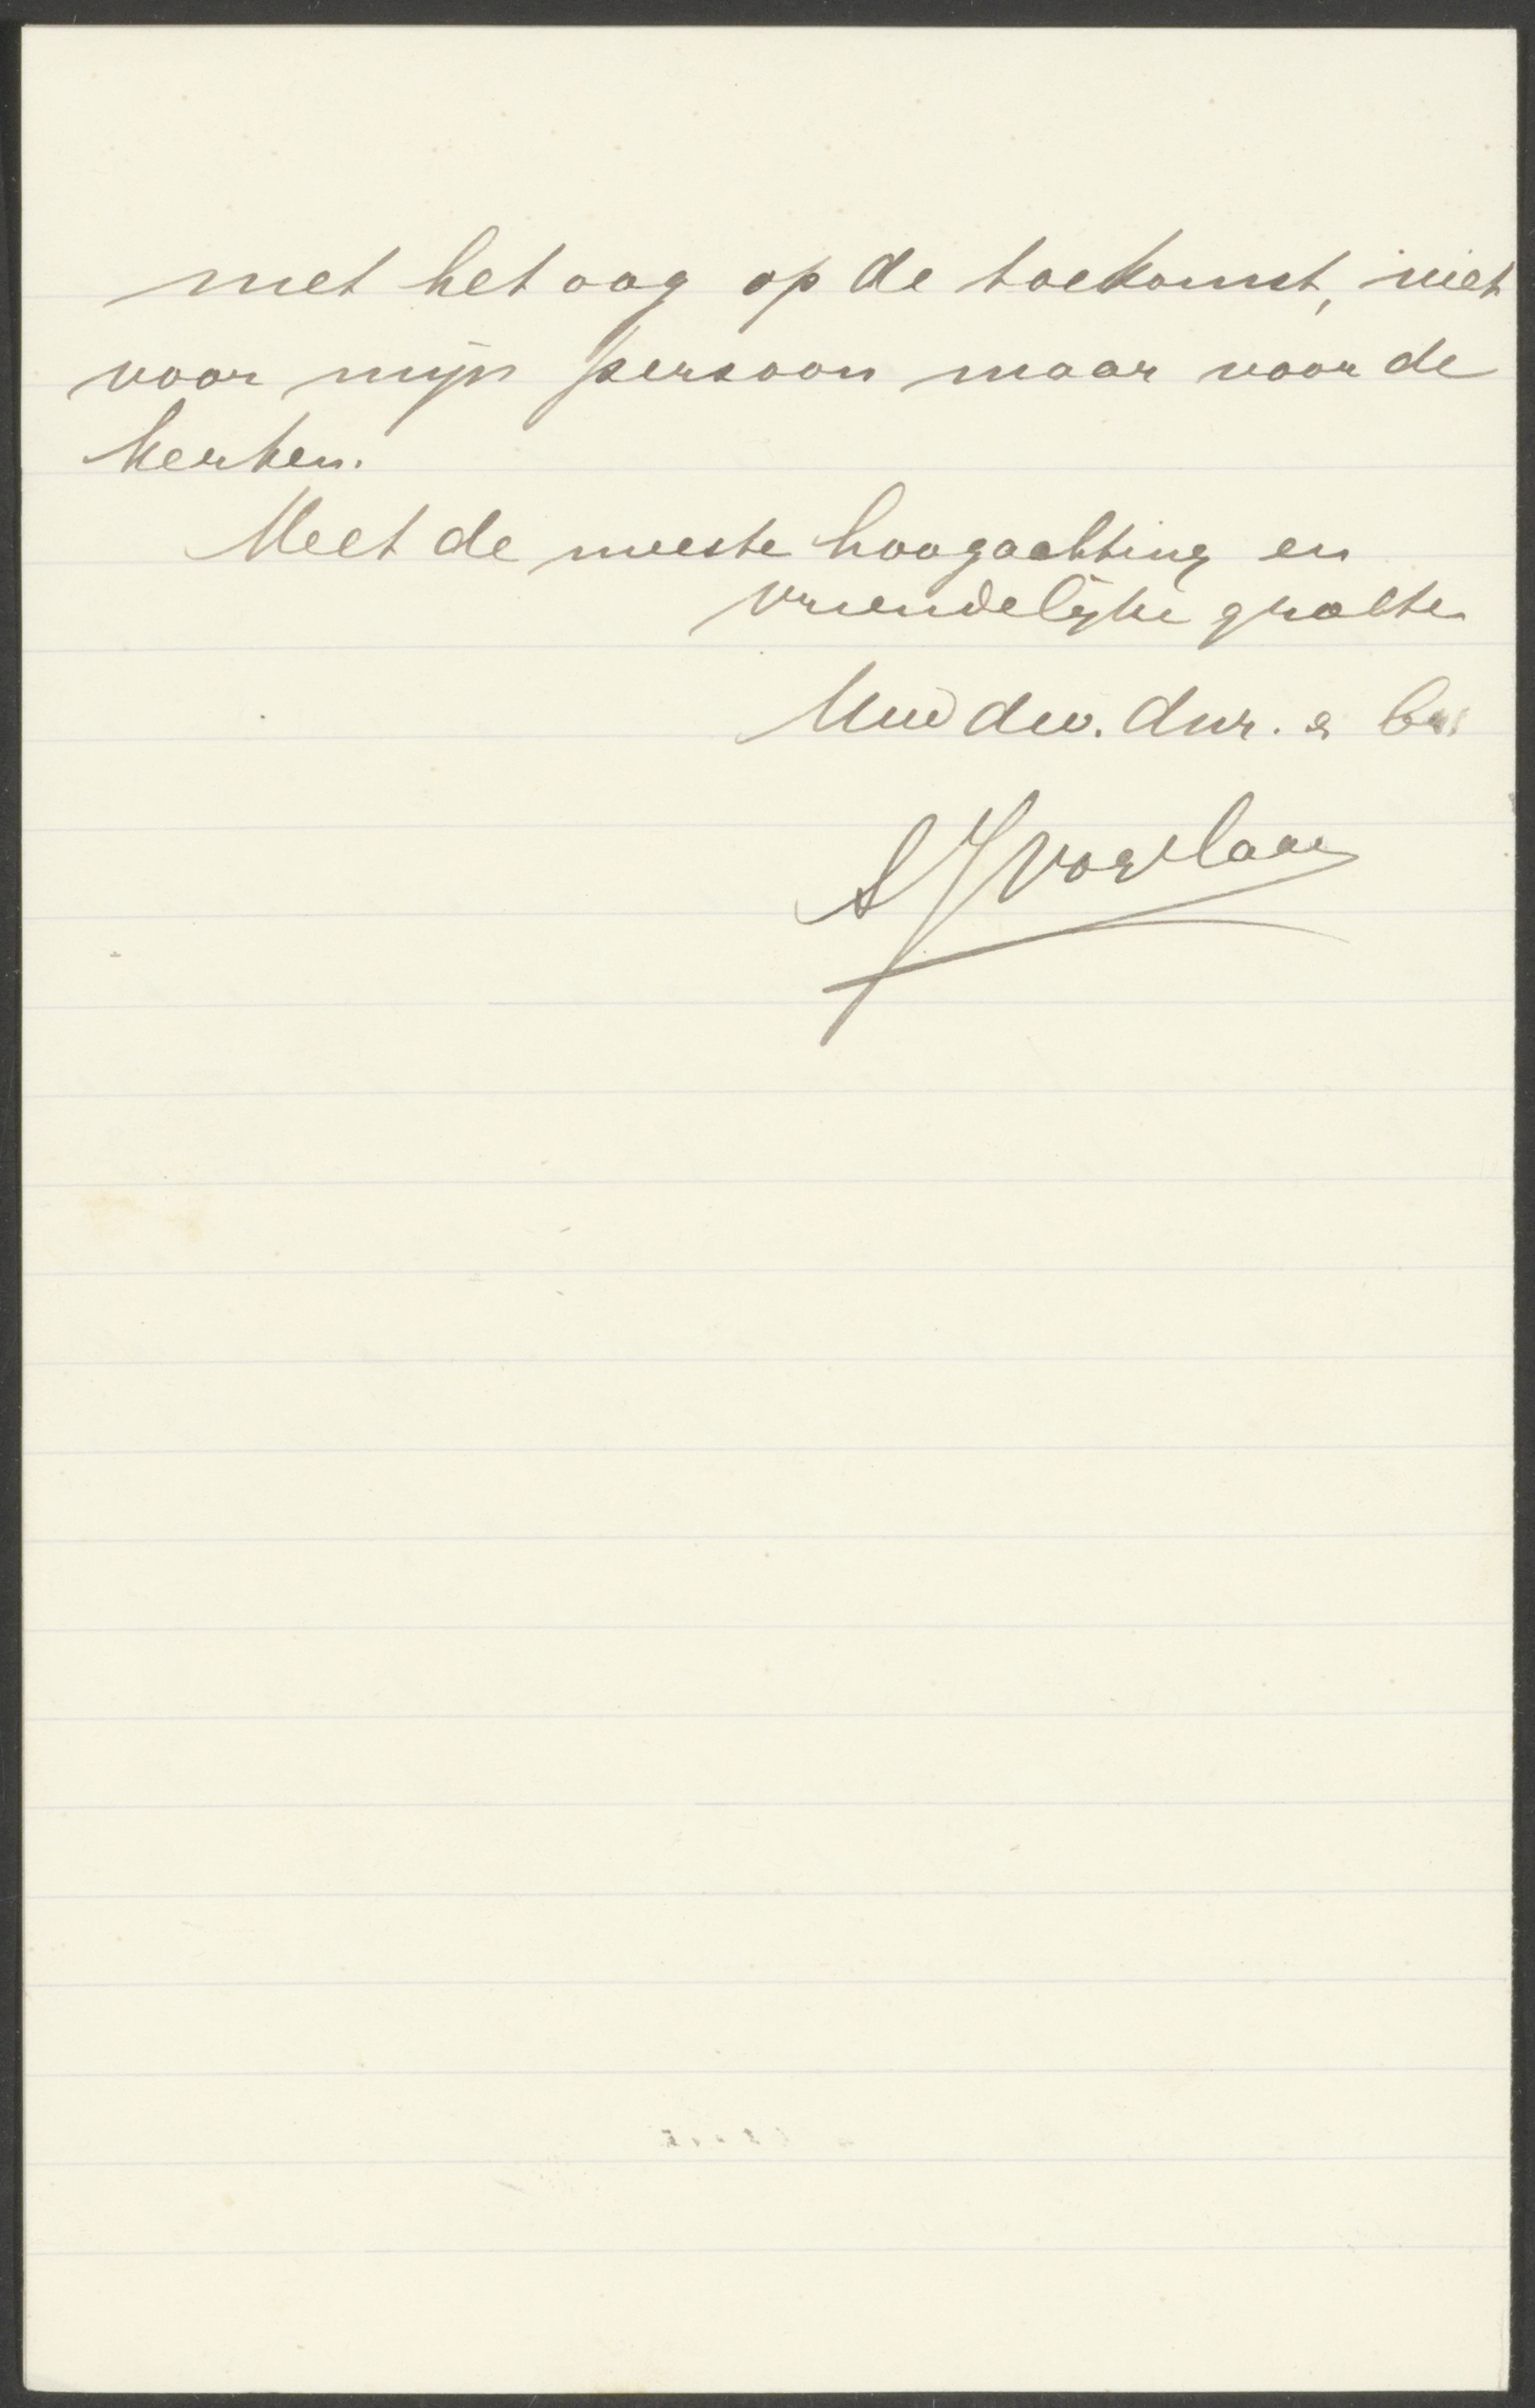 met het oog op de toekomst, niet
voor mijn persoon maar voor de
kerken.
Meet de meeste hoogachting en
vriendelijke groete
Uw dw. dnr. & br.